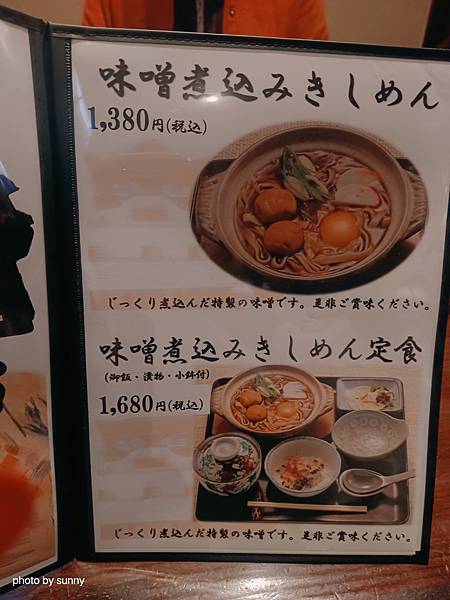 味噌煮込みきしめん
1,380円(税込)
じっくり煮込んだ特製の味噌です。是非ご賞味ください。
味噌煮込みきしめん定食
(御飯・漬物・小鉢付)
1,680円(税込)
じっくり煮込んだ特製の味噌です。是非ご賞味ください。
photo by sunny